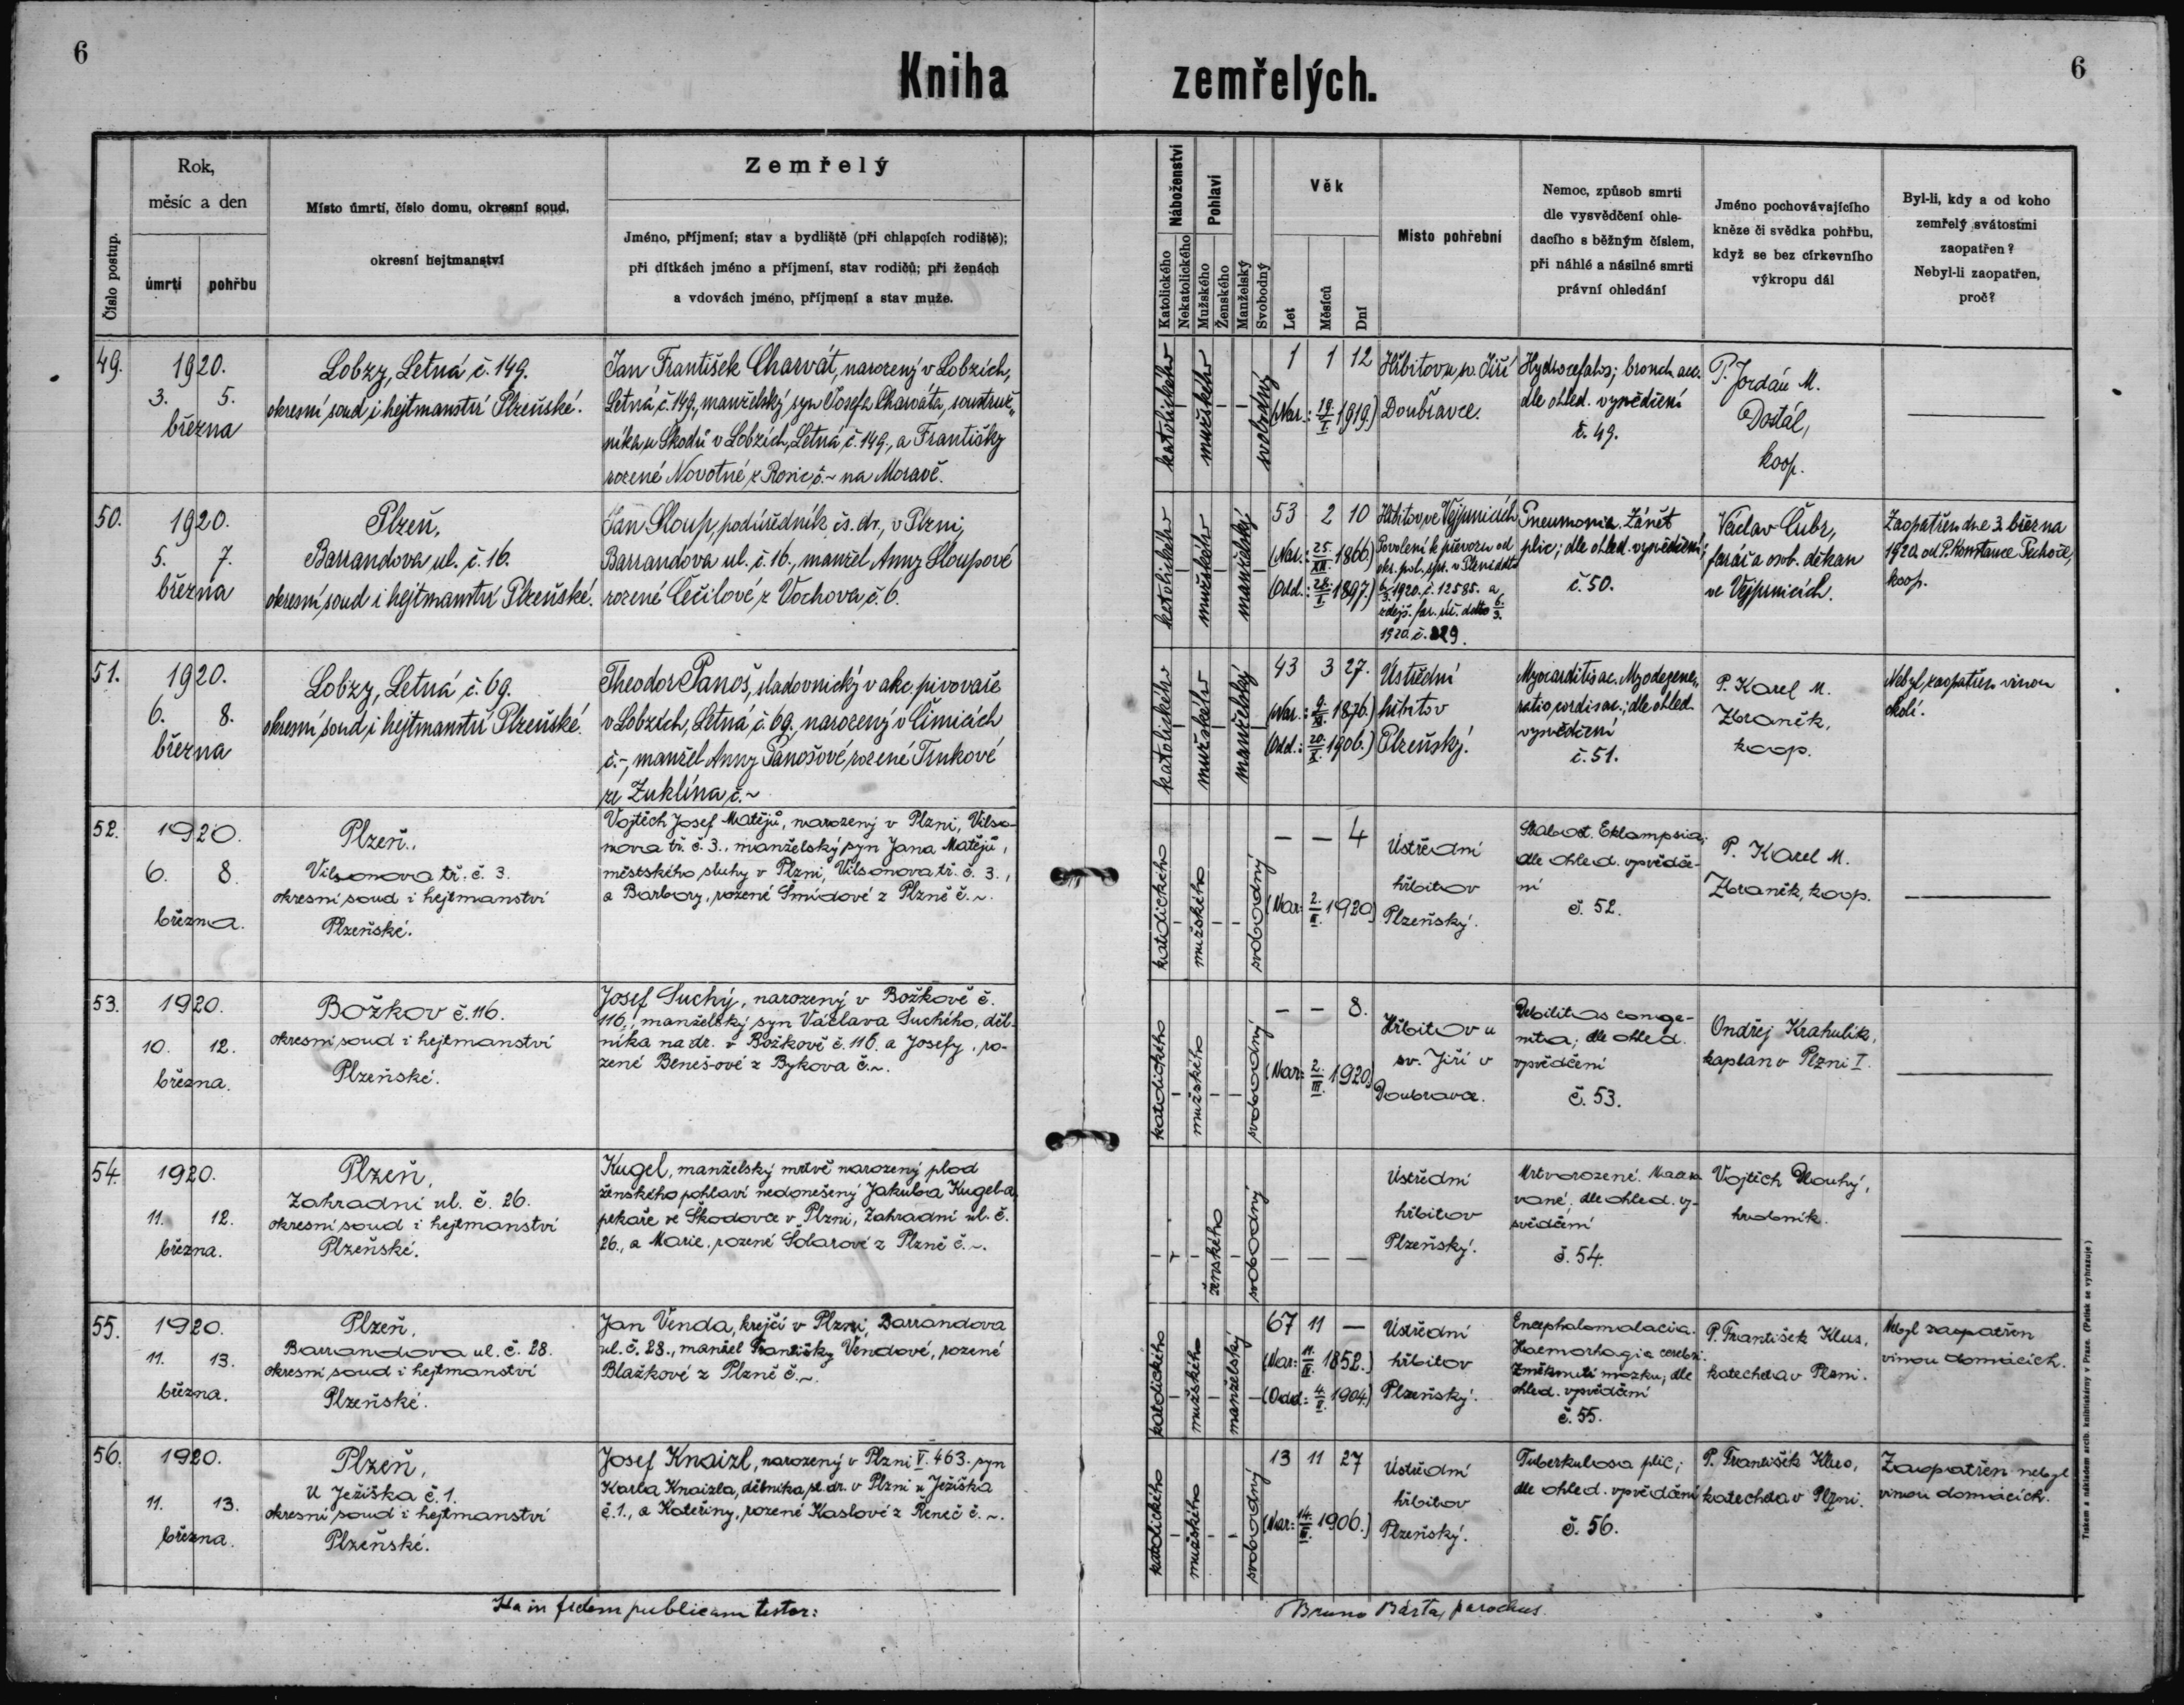 6
6
Kniha zemřelých.
Číslo postup.
Rok,
měsíc a den
úmrtí
pohřbu
Místo úmrtí, číslo domu, okresní soud,
okresní hejtmanství
Zemřelý
Jméno, příjmení; stav a bydliště (při chlapcích rodiště);
při dítkách jméno a příjmení, stav rodičů; při ženách
a vdovách jméno, příjmení a stav muže.
Náboženství
Katolického
Nekatolického
Pohlaví
Mužského
Ženského
Manželský
Svobodný
Věk
Let
Měsíců
Dní
Místo pohřební
Nemoc, způsob smrti
dle vysvědčení ohle-
dacího s běžným číslem,
při náhlé a násilné smrti
právní ohledání
Jméno pochovávajícího
kněze či svědka pohřbu,
když se bez církevního
výkropu dál
Byl-li, kdy a od koho
zemřelý svátostmi
zaopatřen?
Nebyl-li zaopatřen,
proč?
49.
1920.
3. 5.
března
Lobzy, Letná č. 149.
okresní soud i hejtmanství Plzeňské.
Jan František Charvát, narozený v Lobzích,
Letná č. 149., manželský syn Josefa Charváta, soustruž-
níka u Škodů v Lobzích, Letná č. 149., a Františky
rozené Novotné z Rosic č. ~ na Moravě.
katolického
mužského
svobodný
1 1 12
(Nar.: 19./I. 1919.)
Hřbitov u sv. Jiří
Doubravce.
Hydrocefalos; bronch. ac.
dle ohled. vysvědčení
č. 49.
P. Jordán M.
Dostál,
koop.
50.
1920.
5. 7.
března
Plzeň,
Barrandova ul. č. 16.
okresní soud i hejtmanství Plzeňské.
Jan Sloup, podúředník čs. dr., v Plzni,
Barrandova ul. č. 16., manžel Anny Sloupové
rozené Čečilové z Vochova č. 6.
katolického
mužského
manželský
53 2 10
(Nar.: 25./XII. 1866.)
(Odd.: 28./I. 1897.)
Hřbitov ve Vejprnicích
Povolení k převozu od
okr. pol. spr. v Plzni ddto
6./3. 1920. č. 12585. a
zdejš. far. úř. ddto 6./3.
1920. č. 229.
Pneumonia. Zánět
plic; dle ohled. vysvědčení;
č. 50.
Václav Čubr,
farář a osob. děkan
ve Vejprnicích.
Zaopatřen dne 3. března
1920. od P. Konstance
koop.
51.
1920.
6. 8.
března
Lobzy, Letná č. 69.
okresní soud i hejtmanství Plzeňské.
Theodor Panoš, sladovnický v akc. pivovaře
v Lobzích, Letná č. 69., narozený v Čimicích
č. -, manžel Anny Panošové rozené Trnkové
ze Zuklína č. ~
katolického
mužského
manželský
43 3 27.
(Nar.: 9./XI. 1876.)
(Odd.: 20./X. 1906.)
Ústřední
hřbitov
Plzeňský.
Myocarditis ac. Myodegene-
ratio cordis ac.; dle ohled.
vysvědčení
č. 51.
P. Karel M.
Zbraněk,
koop.
Nebyl zaopatřen vinou
okolí.
52.
1920.
6. 8.
března.
Plzeň.,
Vilsonova tř. č. 3.
okresní soud i hejtmanství
Plzeňské.
Vojtěch Josef Matějů, narozený v Plzni, Vilso-
nova tř. č. 3., manželský syn Jana Matějů,
městského sluhy v Plzni, Vilsonova tř. č. 3.,
a Barbory, rozené Šmídové z Plzně č. ~.
katolického
mužského
svobodný
— — 4
(Nar: 2./III. 1920)
Ústřední
hřbitov
Plzeňský.
Slabost. Eklampsia;
dle ohled. vysvědče-
ní
č. 52.
P. Karel M.
Zbraněk, koop.
53.
1920.
10. 12.
března.
Božkov č. 116.
okresní soud i hejtmanství
Plzeňské.
Josef Suchý, narozený v Božkově č.
116., manželský syn Václava Suchého, děl-
níka na dr. v Božkově č. 116. a Josefy, ro-
zené Benešové z Bykova č. ~.
katolického
mužského
svobodný
— — 8.
(Nar: 2./III. 1920)
Hřbitov u
sv. Jiří v
Doubravce.
Debilitas conge-
nita; dle ohled.
vysvědčení
č. 53.
Ondřej Krahulík,
kaplan v Plzni I.
54.
1920.
11. 12.
března.
Plzeň,
Zahradní ul. č. 26.
okresní soud i hejtmanství
Plzeňské.
Kugel, manželský mrtvě narozený plod
ženského pohlaví nedonešený Jakuba Kugel-a,
pekaře ve Škodovce v Plzni, Zahradní ul. č.
26., a Marie, rozené Šolarové z Plzně č. ~.
ženského
svobodný
Ústřední
hřbitov
Plzeňský.
Mrtvorozené.
dle ohled. vy-
svědčení
č. 54.
Vojtěch Dlouhý,
hrobník.
55.
1920.
11. 13.
března.
Plzeň,
Barrandova ul. č. 28.
okresní soud i hejtmanství
Plzeňské.
Jan Venda, krejčí v Plzni, Barrandova
ul. č. 28., manžel Františky Vendové, rozené
Blažkové z Plzně č. ~.
katolického
mužského
manželský
67 11 —
(Nar: 11./IV. 1852.)
(Odd.: 4./V. 1904.)
Ústřední
hřbitov
Plzeňský.
Encephalomalacia.
Haemorhagia cerebri.
Změknutí mozku; dle
ohled. vysvědčení
č. 55.
P. František Klus,
katecheta v Plzni.
Nebyl zaopatřen
vinou domácích.
56.
1920.
11. 13.
března.
Plzeň,
U Ježíška č. 1.
okresní soud i hejtmanství
Plzeňské.
Josef Knaizl, narozený v Plzni V. 463. syn
Karla Knaizla, dělníka st. dr. v Plzni u Ježíška
č. 1., a Kateřiny, rozené Kaslové z Řeneč č. ~.
katolického
mužského
svobodný
13 11 27
(Nar: 14./III. 1906.)
Ústřední
hřbitov
Plzeňský.
Tuberkulosa plic;
dle ohled. vysvědčení
č. 56.
P. František Klus,
katecheta v Plzni.
Zaopatřen nebyl
vinou domácích.
Ita in fidem publicam testor:
Bruno Bárta, parochus.
Tiskem a nákladem arcib. knihtiskárny v Praze. (Patisk se vyhrazuje)